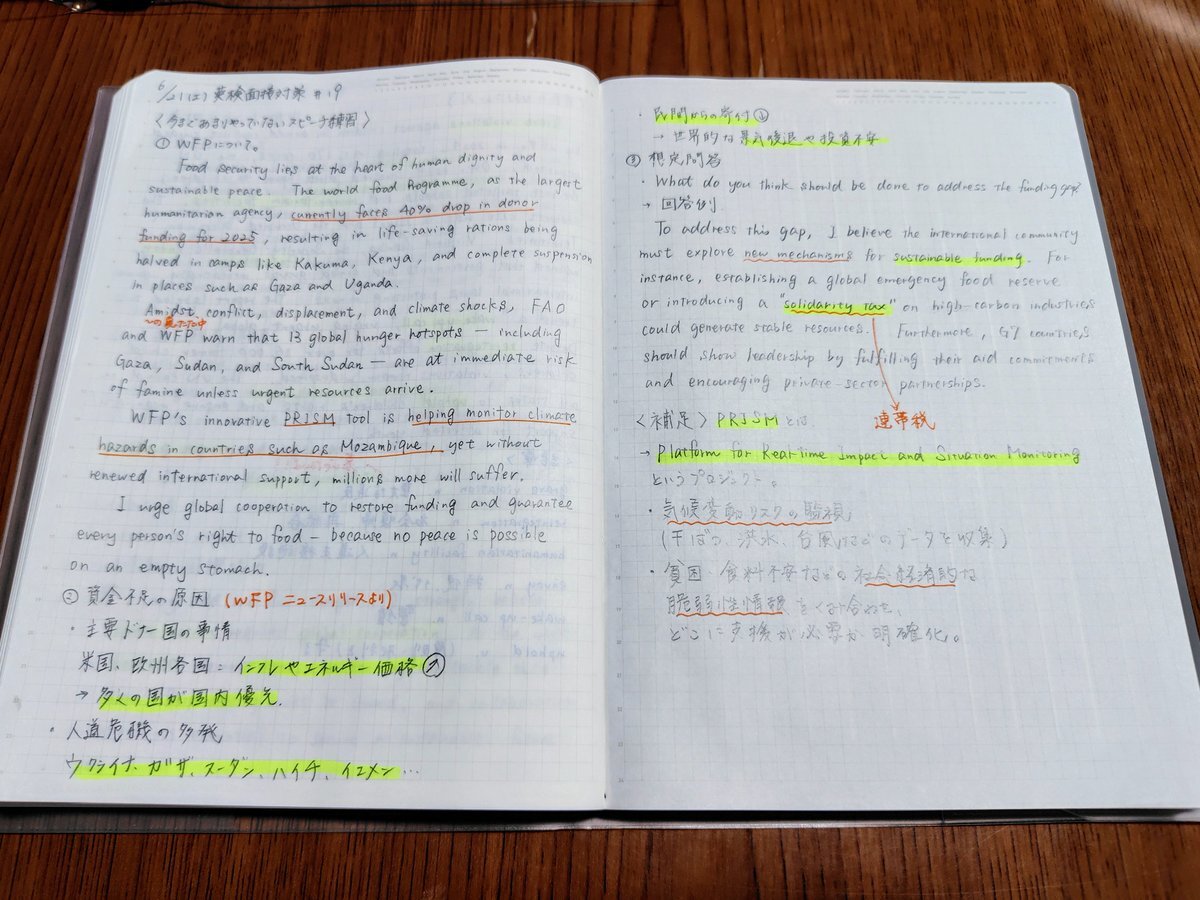 6/21(土) 英検面接対策 #19
〈今まであまりやっていないスピーチ練習〉
① WFPについて。
Food security lies at the heart of human dignity and
sustainable peace. The world Food Programme, as the largest
humanitarian agency, currently faces 40% drop in donor
funding for 2025, resulting in life-saving rations being
halved in camps like Kakuma, Kenya, and complete suspension
in places such as Gaza and Uganda.
Amidst conflict, displacement, and climate shocks, FAO
〜の真っただ中
and WFP warn that 13 global hunger hotspots — including
Gaza, Sudan, and South Sudan — are at immediate risk
of famine unless urgent resources arrive.
WFP's innovative PRISM tool is helping monitor climate
hazards in countries such as Mozambique, yet without
renewed international support, millions more will suffer.
I urge global cooperation to restore funding and guarantee
every person's right to food — because no peace is possible
on an empty stomach.
② 資金不足の原因 (WFP ニュースリリースより)
・主要ドナー国の事情
米国、欧州各国：インフレやエネルギー価格↗
→ 多くの国が国内優先.
・人道危機の多発
ウクライナ、ガザ、スーダン、ハイチ、イエメン…
・民間からの寄付↓
→ 世界的な景気後退や投資不安
③ 想定問答
What do you think should be done to address the funding gap?
→ 回答例
To address this gap, I believe the international community
must explore new mechanisms for sustainable funding. For
instance, establishing a global emergency food reserve
or introducing a "solidarity tax" on high-carbon industries
could generate stable resources. Furthermore, G7 countries
should show leadership by fulfilling their aid commitments
and encouraging private-sector partnerships.
連帯税
〈補足〉PRISMとは
→ Platform for Real-time Impact and Situation Monitoring
というプロジェクト。
・気候変動リスクの監視,
(干ばつ、洪水、台風などのデータを収集)
・貧困・食料不安などの社会経済的な
脆弱性情報をくみ合わせ、
どこに支援が必要か明確化。